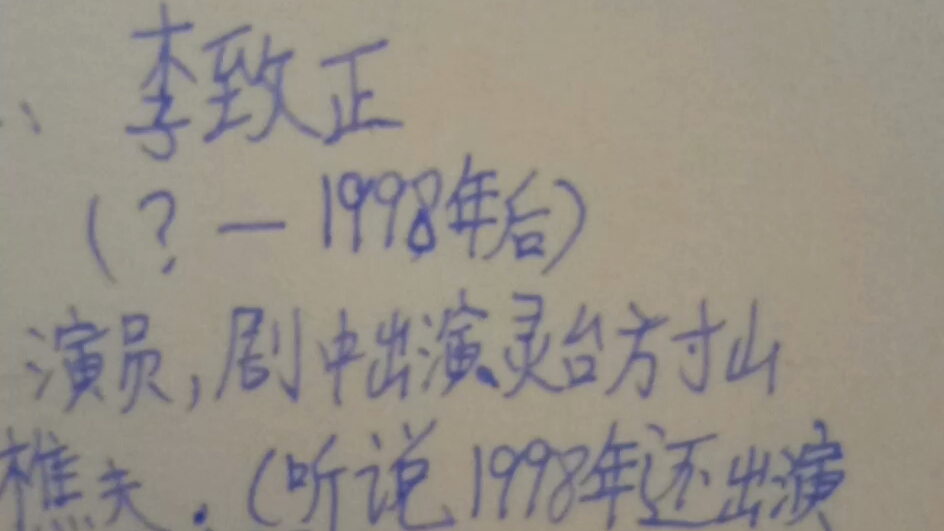 、李致正
(?—1998年后)
演员,剧中出演灵台方寸山
樵夫.(听说1998年还出演